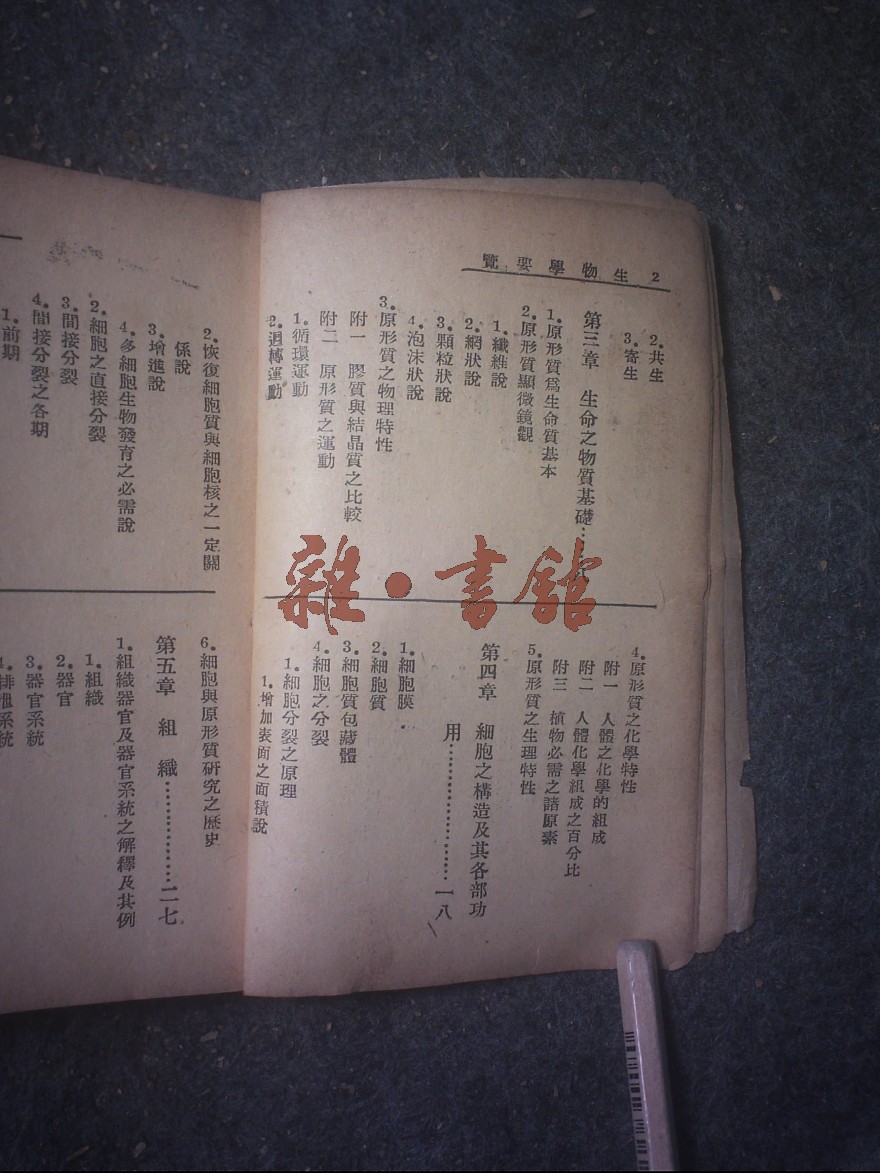 2 生物學要覽
2. 共生
3. 寄生
第三章 生命之物質基礎……
1. 原形質爲生命質基本
2. 原形質顯微鏡觀
1. 纖維說
2. 網狀說
3. 顆粒狀說
4. 泡沫狀說
3. 原形質之物理特性
附一 膠質與結晶質之比較
附二 原形質之運動
1. 循環運動
2. 迴轉運動
4. 原形質之化學特性
附一 人體之化學的組成
附二 人體化學組成之百分比
附三 植物必需之諸原素
5. 原形質之生理特性
第四章 細胞之構造及其各部功
用……………………一八
1. 細胞膜
2. 細胞質
3. 細胞質包藏體
4. 細胞之分裂
1. 細胞分裂之原理
1. 增加表面之面積說
2. 恢復細胞質與細胞核之一定關
係說
3. 增進說
4. 多細胞生物發育之必需說
2. 細胞之直接分裂
3. 間接分裂
4. 間接分裂之各期
1. 前期
6. 細胞與原形質研究之歷史
第五章 組織………………二七
1. 組織器官及器官系統之解釋及其例
1. 組織
2. 器官
3. 器官系統
排泄系統
雜·書館